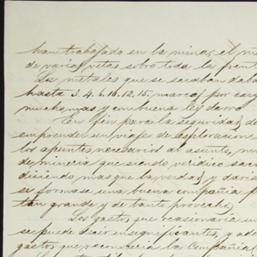 han trabajado en la minas, el m
de varias vetas sobre toda la frent
Los metales que se sacaban daba
hasta 3. 4. 6. 10. 12. 15. marcos por carg
muchos mas y con buena ley de oro
En fin para la seguridad d
emprender un viaje de esploracion
los apuntes necesarios al asunto, n
de mineria que siendo veridico sac
diciendo mas que la verdad y dari
se formase una buena compañia p
tan grande y de tanto provecho.
Los gastos que ocasionaria un
se puede decir insignificantes, y ad
gastos que reconoceria la Compañia